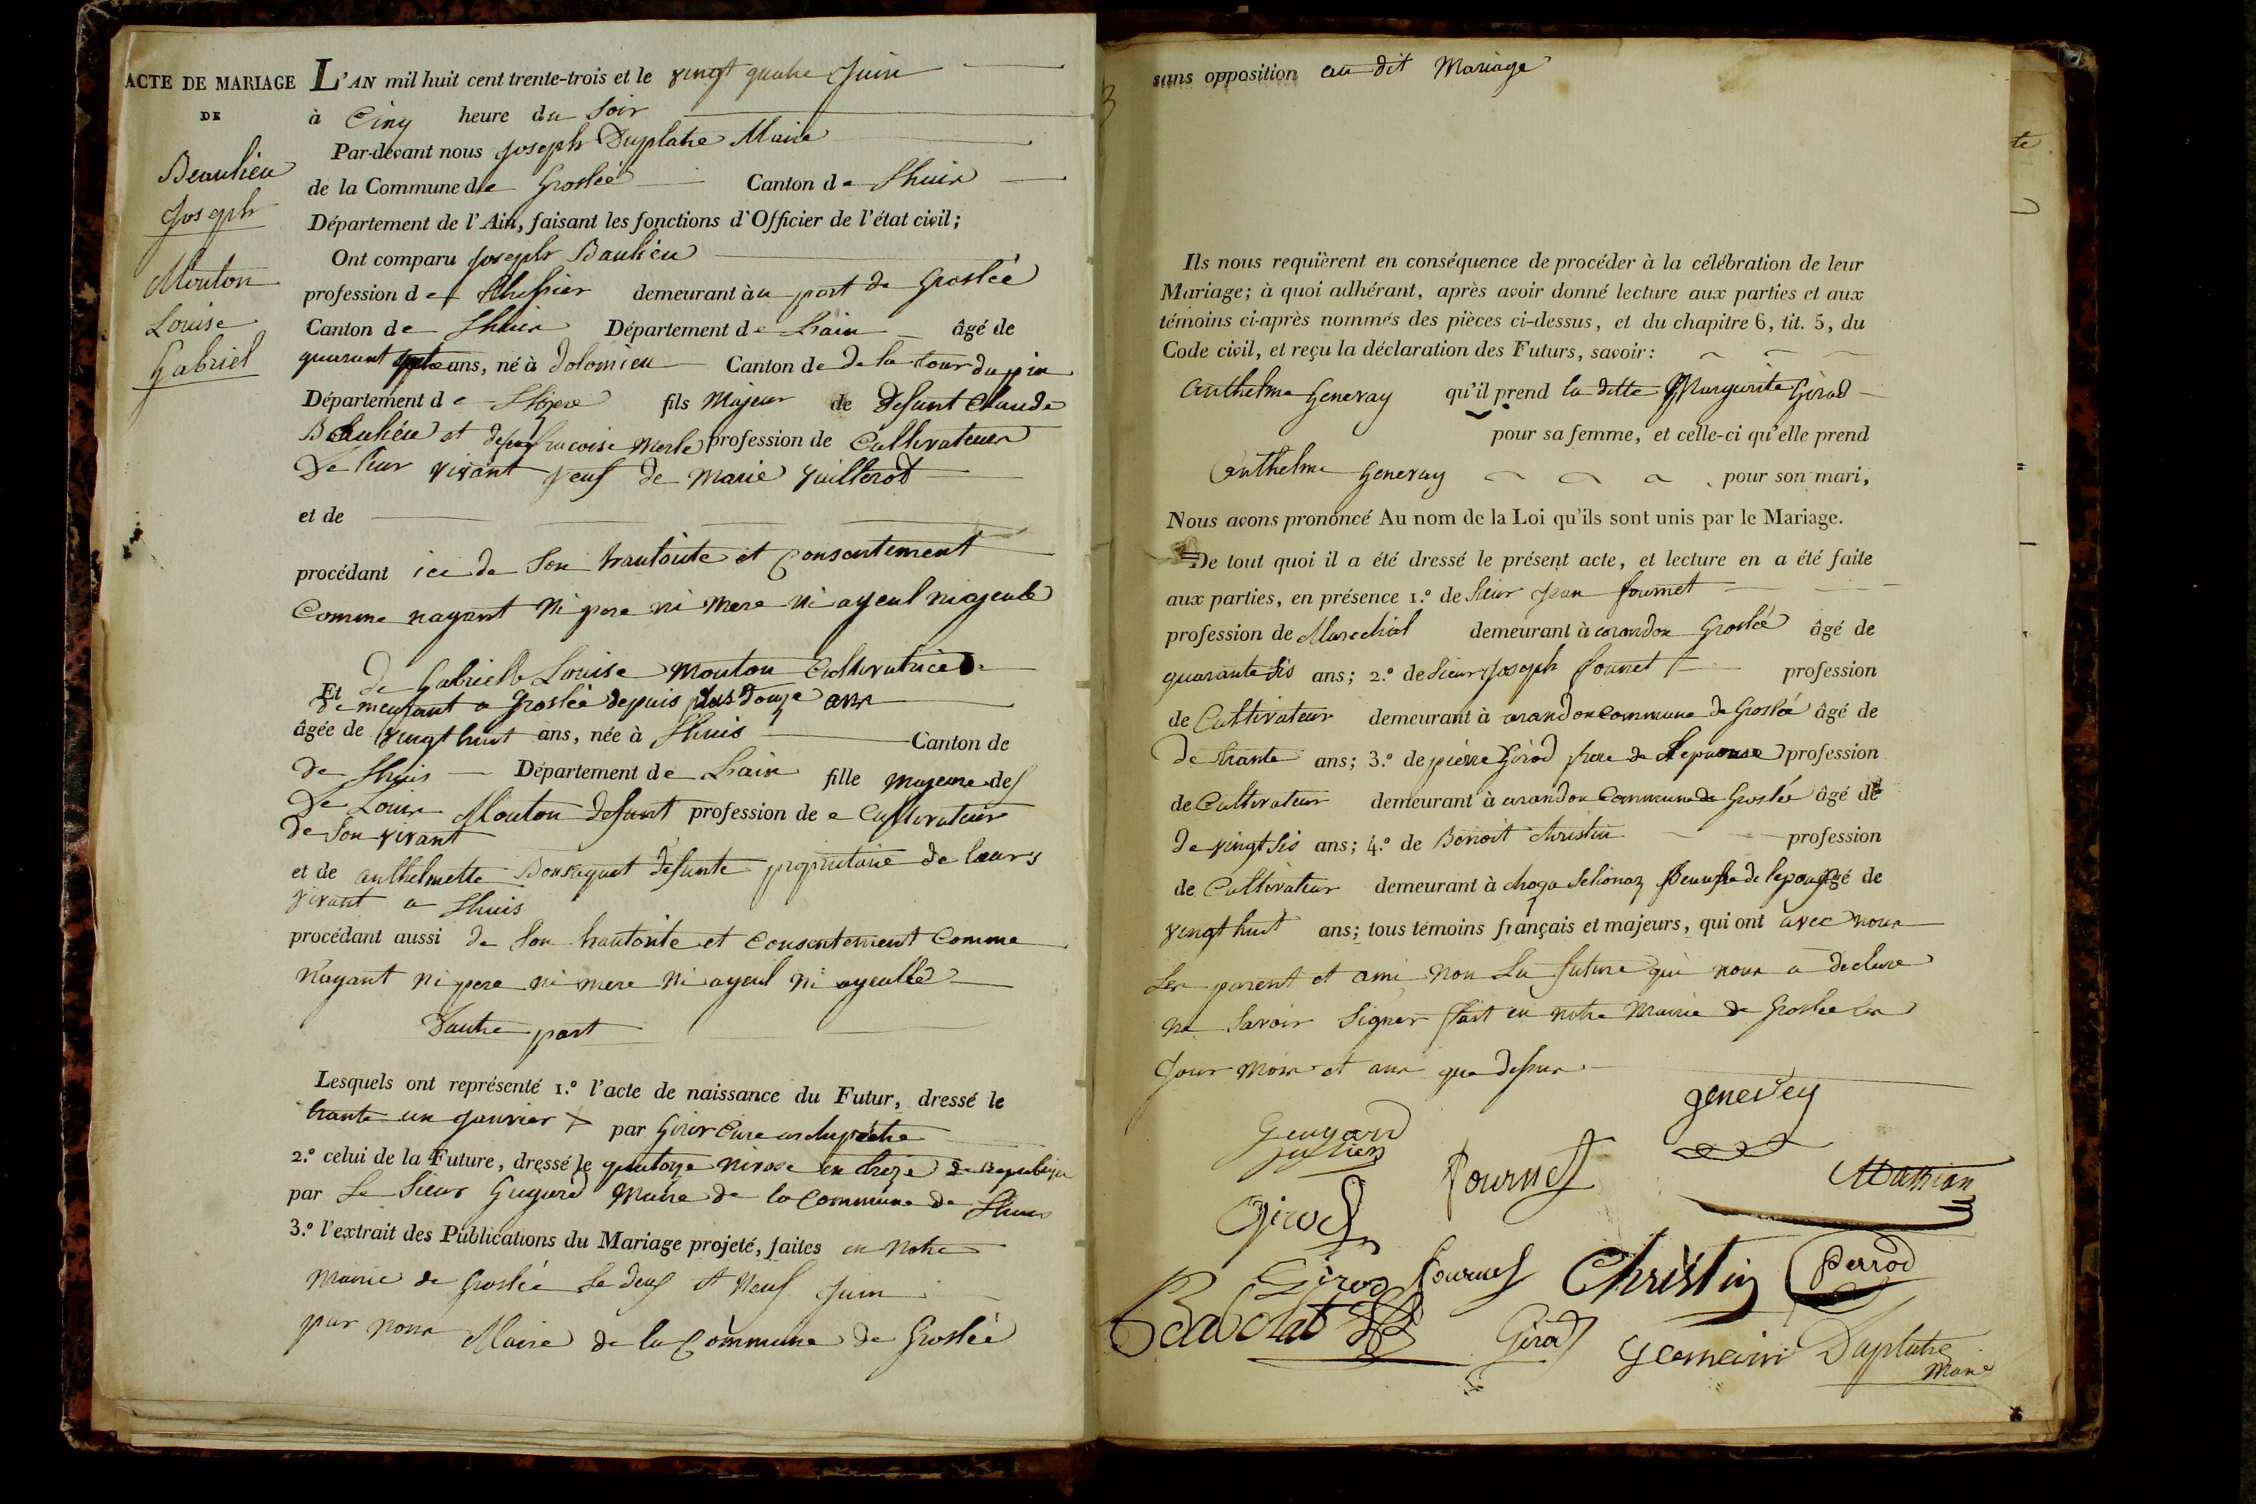 ACTE DE MARIAGE
DE
Beaulieu
Joseph
Mouton
Louise
Gabriel
L'AN mil huit cent trente-trois et le vingt quatre Juin
à Cinq heure du Soir
Par-devant nous Joseph Duplatre Maire
de la Commune de Groslée Canton de Lhuis
Département de l'Ain, faisant les fonctions d'Officier de l'état civil;
Ont comparu Joseph Baulieu
profession de demeurant à au port de Groslée
Canton de Lhuis Département de Lain âgé de
quarant ans, né à Dolomieu Canton de de la tour du pin
Département de Lhizere fils Majeur de defunt Claude
Beaulieu et francoise Merle profession de Cultivateur
De leur vivant veuf de Marie Guillerot
et de
procédant ici de Son hautoirité et Consentement
Comme nayant Ni pere ni mere Ni ayeul ni ayeule
Et de Gabrielle Louise Mouton Cultivatrice
Demeurant a Groslée depuis plus Douze ans
âgée de vingt huit ans, née à Lhuis Canton de
de Lhuis Département de Lain fille majeure des
De Louis Mouton defunt profession de Cultivateur
de Son vivant
et de anthelmette defunte propriétaire de leurs
vivant a Lhuis
procédant aussi de Son hautorité et Consentement Comme
Nayant ni pere ni mere Ni ayeul ni ayeulle
Dautre part
Lesquels ont représenté 1.º l'acte de naissance du Futur, dressé le
trante un Janvier par Cure archipretre
2.º celui de la Future, dressé le quatorze nivose an treize de Republique
par Le Sieur Guyard Maire de la Commune de Lhuis
3.º l'extrait des Publications du Mariage projeté, faites en Notre
Mairie de Groslée Le deux et Neuf Juin
par nous Maire de la Commune de Groslée
sans opposition au dit Mariage
Ils nous requièrent en conséquence de procéder à la célébration de leur
Mariage; à quoi adhérant, après avoir donné lecture aux parties et aux
témoins ci-après nommés des pièces ci-dessus, et du chapitre 6, tit. 5, du
Code civil, et reçu la déclaration des Futurs, savoir:
Anthelme Genevay qu'il prend la ditte Marguerite Girod
pour sa femme, et celle-ci qu'elle prend
Anthelme Genevay pour son mari,
Nous avons prononcé Au nom de la Loi qu'ils sont unis par le Mariage.
De tout quoi il a été dressé le présent acte, et lecture en a été faite
aux parties, en présence 1.º de Sieur Jean fournet
profession de Marechal demeurant à arandon Groslée âgé de
quarante Sis ans; 2.º de Sieur Joseph fournet profession
de Cultivateur demeurant à arandon Commune de Groslée âgé de
de trante ans; 3.º de pierre Girod frere de Lepouse profession
de Cultivateur demeurant à arandon Commune de Groslée âgé de
de vingt Sis ans; 4.º de Benoit Christin profession
de Cultivateur demeurant à de âgé de
vingt huit ans; tous témoins français et majeurs, qui ont avec nous
Les parent et ami Non La future qui nous a declare
ne Savoir Signer fait en notre Mairie de Groslée les
Jour Mois et ans que dessus
genevey
Guyard
Fournet
Massian
Girod
Girod
Fournet
Christin
Perrod
Babolat
Girod
Germain
Duplatre
Maire
te